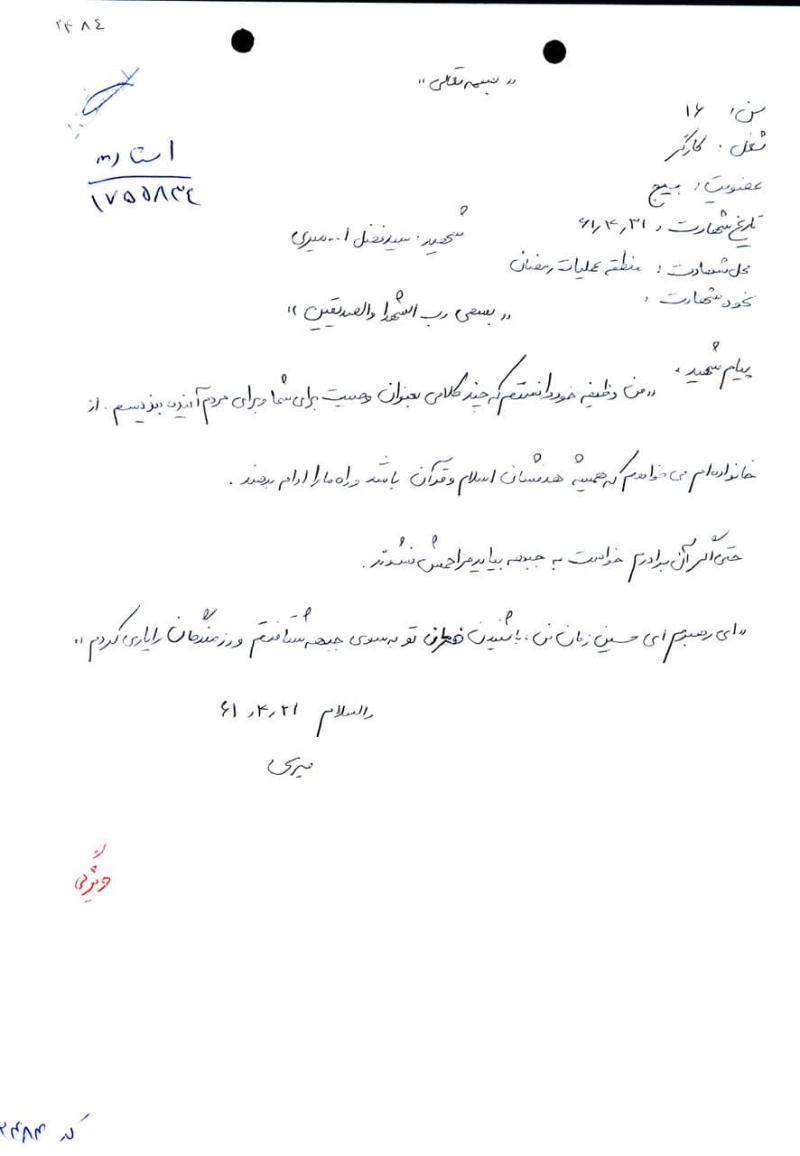 ۲۴۸۴
« بسمه تعالی »
سن: ۱۶
شغل: کارگر
اسناد
۱۷۵۵۸۳۴
عضویت: بسیج
تاریخ شهادت: ۶۱٫۴٫۳۱
شهید: سید فضل ا... میری
محل شهادت: منطقه عملیات رمضان
نحوه شهادت:
« بسمی رب الشهدا والصدیقین »
پیام شهید:
« من وظیفه خود دانستم که چند کلامی بعنوان وصیت برای شما و برای مردم آینده بنویسم. از
خانواده‌ام می خواهم که همیشه هدفشان اسلام و قرآن باشد و راه ما را ادامه بدهند.
حتی اگر آن برادرم خواست به جبهه بیاید مزاحمش نشوند.
« ای رهبرم ای حسین زمان من، با شنیدن فرمان تو به سوی جبهه شتافتم و رزمندگان را یاری کردم »
والسلام ۶۱٫۴٫۲۱
میری
کد ۲۴۸۴